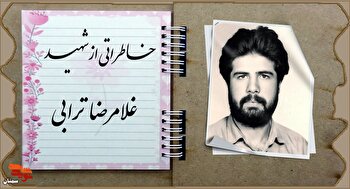 خاطراتی از شهید
غلامرضا ترابی